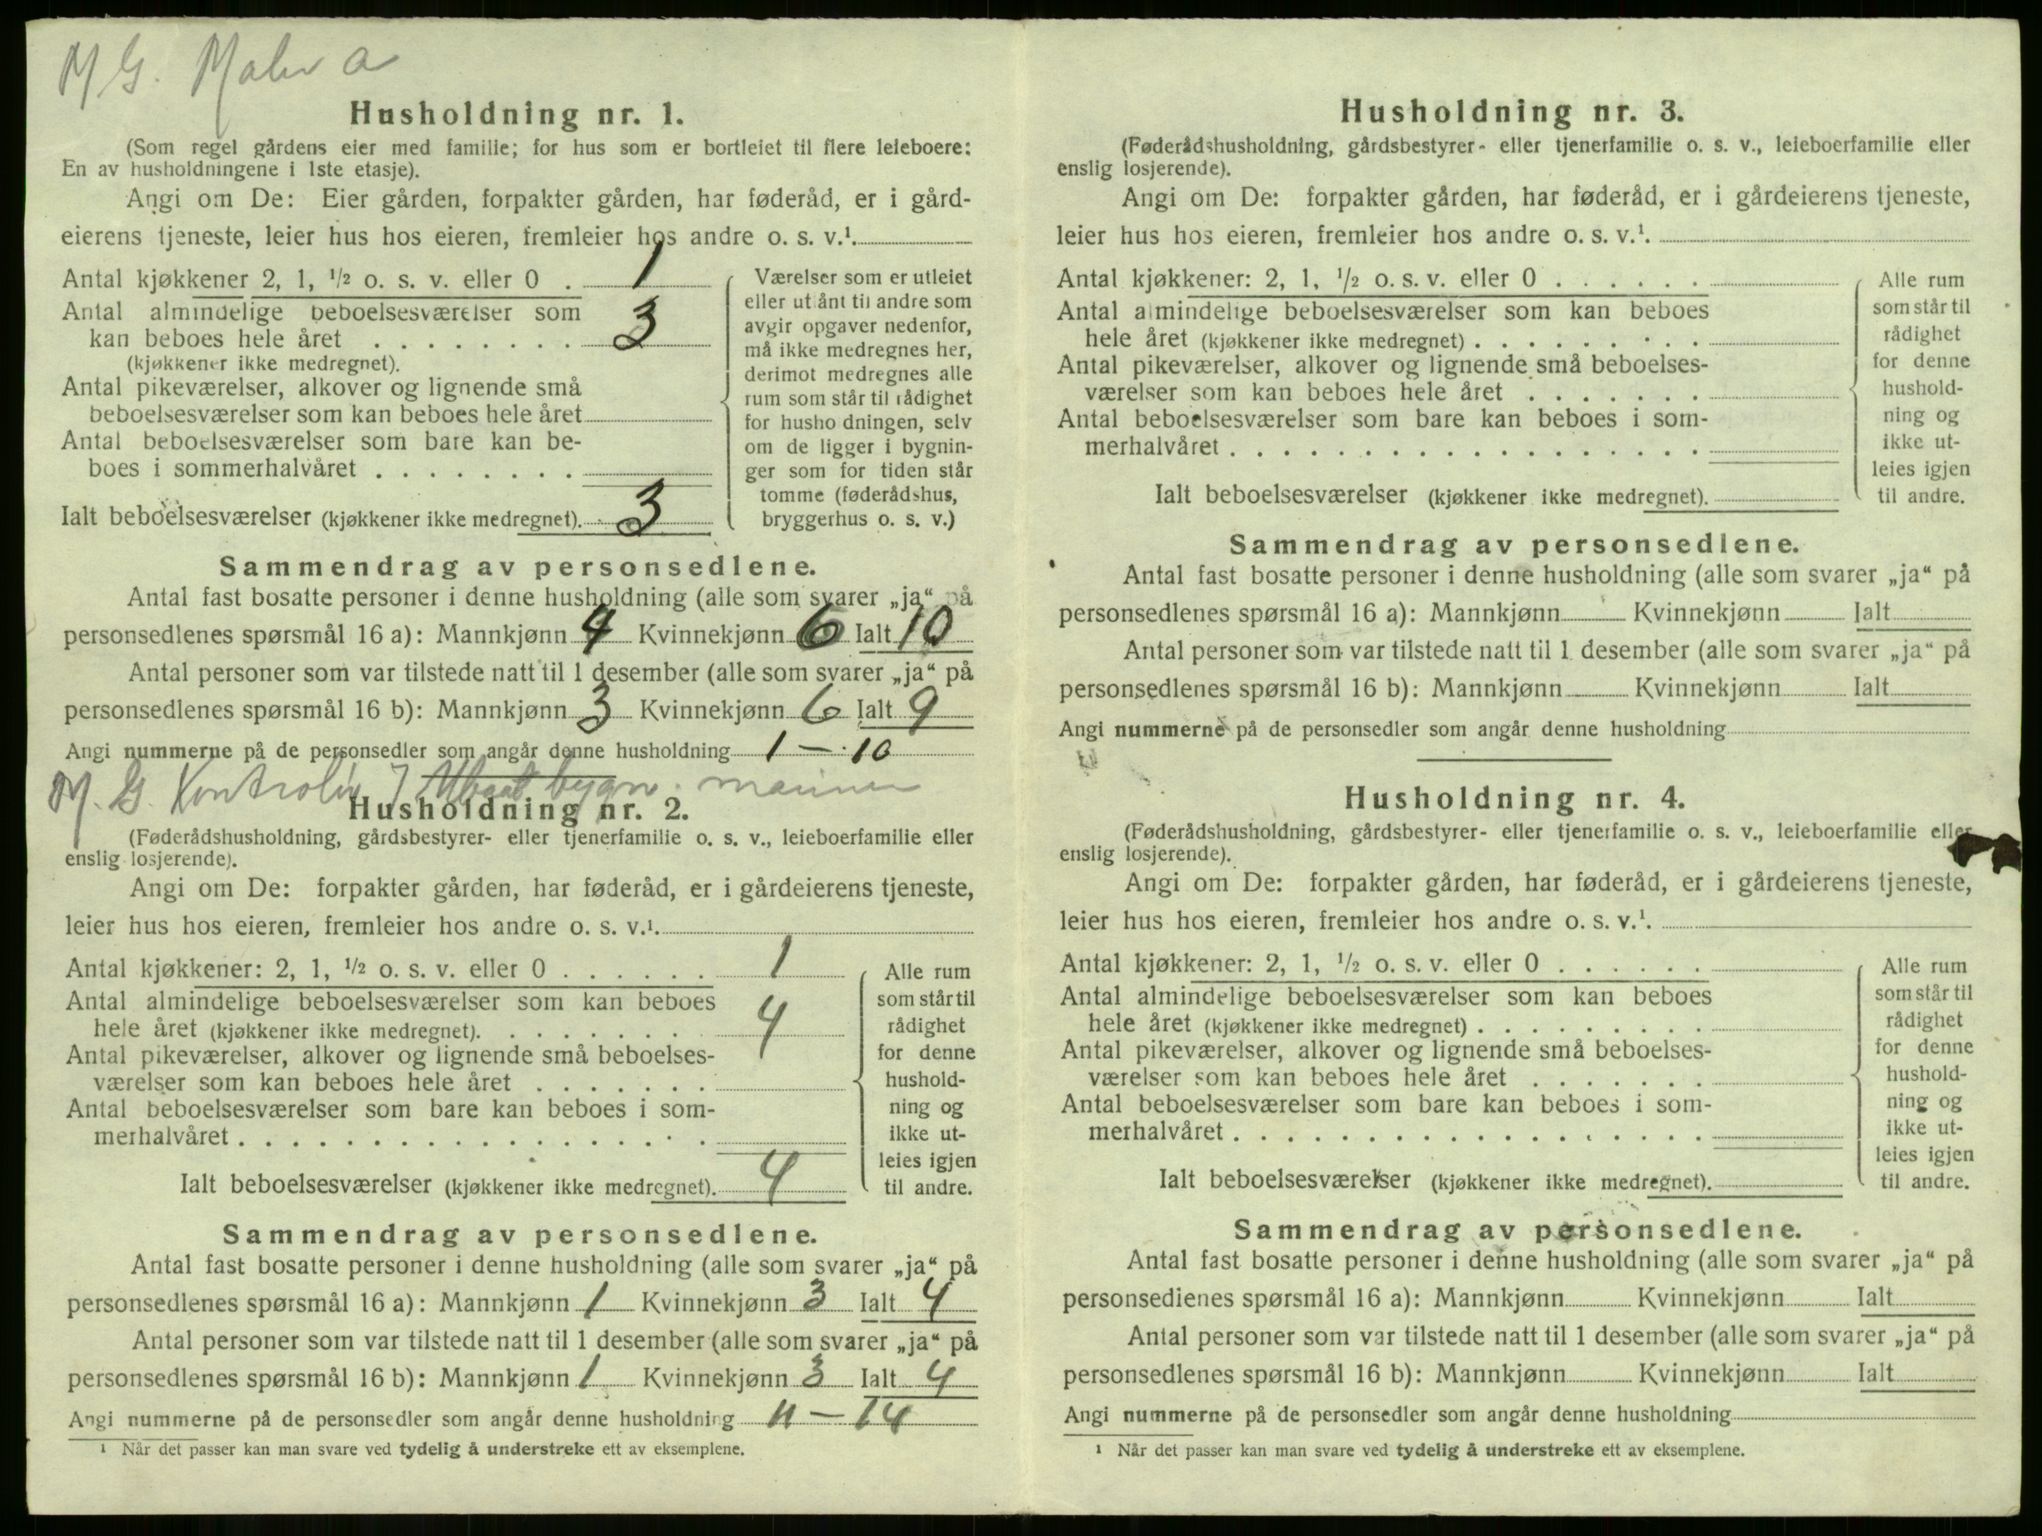 M G. Maler a
Husholdning nr. 1.
(Som regel gårdens eier med familie; for hus som er bortleiet til flere leieboere:
En av husholdningene i 1ste etasje).
Angi om De: Eier gården, forpakter gården, har føderåd, er i gård-
eierens tjeneste, leier hus hos eieren, fremleier hos andre o. s. v.¹.
Antal kjøkkener 2, 1, ¹/₂ o. s. v. eller 0 . 1
Antal almindelige beboelsesværelser som
kan beboes hele året . . . . . . . . 3
(kjøkkener ikke medregnet).
Antal pikeværelser, alkover og lignende små
beboelsesværelser som kan beboes hele året
Antal beboelsesværelser som bare kan be-
boes i sommerhalvåret . . . . . . . .
Ialt beboelsesværelser (kjøkkener ikke medregnet). 3
Værelser som er utleiet
eller ut ånt til andre som
avgir opgaver nedenfor,
må ikke medregnes her,
derimot medregnes alle
rum som står til rådighet
for husho dningen, selv
om de ligger i bygnin-
ger som for tiden står
tomme (føderådshus,
bryggerhus o. s. v.)
Sammendrag av personsedlene.
Antal fast bosatte personer i denne husholdning (alle som svarer „ja“ på
personsedlenes spørsmål 16 a): Mannkjønn 4 Kvinnekjønn 6 Ialt 10
Antal personer som var tilstede natt til 1 desember (alle som svarer „ja“ på
personsedlenes spørsmål 16 b): Mannkjønn 3 Kvinnekjønn 6 Ialt 9
Angi nummerne på de personsedler som angår denne husholdning 1 — 10
M. G. Kontrollør bygn. 
Husholdning nr. 2.
(Føderådshusholdning, gårdsbestyrer- eller tjenerfamilie o. s. v., leieboerfamilie eller
enslig losjerende).
Angi om De: forpakter gården, har føderåd, er i gårdeierens tjeneste,
leier hus hos eieren, fremleier hos andre o. s. v.¹.
Antal kjøkkener: 2, 1, ¹/₂ o. s. v. eller 0 . . . . . . 1
Antal almindelige beboelsesværelser som kan beboes
hele året (kjøkkener ikke medregnet). . . . . . . . 4
Antal pikeværelser, alkover og lignende små beboelses-
værelser som kan beboes hele året . . . . . . .
Antal beboelsesværelser som bare kan beboes i som-
merhalvåret . . . . . . . . . . . . . . . . . .
Ialt beboelsesværelser (kjøkkener ikke medregnet). 4
Alle rum
som står til
rådighet
for denne
hushold-
ning og
ikke ut-
leies igjen
til andre.
Sammendrag av personsedlene.
Antal fast bosatte personer i denne husholdning (alle som svarer „ja“ på
personsedlenes spørsmål 16 a): Mannkjønn 1 Kvinnekjønn 3 Ialt 4
Antal personer som var tilstede natt til 1 desember (alle som svarer „ja“ på
personsedlenes spørsmål 16 b): Mannkjønn 1 Kvinnekjønn 3 Ialt 4
Angi nummerne på de personsedler som angår denne husholdning 11 — 14
¹ Når det passer kan man svare ved tydelig å understreke ett av eksemplene.
Husholdning nr. 3.
(Føderådshusholdning, gårdsbestyrer- eller tjenerfamilie o. s. v., leieboerfamilie eller
enslig losjerende).
Angi om De: forpakter gården, har føderåd, er i gårdeierens tjeneste,
leier hus hos eieren, fremleier hos andre o. s. v.¹.
Antal kjøkkener: 2, 1, ¹/₂ o. s. v. eller 0 . . . . . .
Antal almindelige beboelsesværelser som kan beboes
hele året (kjøkkener ikke medregnet) . . . . . . . . .
Antal pikeværelser, alkover og lignende små beboelses-
værelser som kan beboes hele året . . . . . . .
Antal beboelsesværelser som bare kan beboes i som-
merhalvåret . . . . . . . . . . . . . . . . . .
Ialt beboelsesværelser (kjøkkener ikke medregnet).
Alle rum
som står til
rådighet
for denne
hushold-
ning og
ikke ut-
leies igjen
til andre.
Sammendrag av personsedlene.
Antal fast bosatte personer i denne husholdning (alle som svarer „ja“ på
personsedlenes spørsmål 16 a): Mannkjønn Kvinnekjønn Ialt
Antal personer som var tilstede natt til 1 desember (alle som svarer „ja“ på
personsedlenes spørsmål 16 b): Mannkjønn Kvinnekjønn Ialt
Angi nummerne på de personsedler som angår denne husholdning
Husholdning nr. 4.
(Føderådshusholdning, gårdsbestyrer- eller tjenerfamilie o. s. v., leieboerfamilie eller
enslig losjerende).
Angi om De: forpakter gården, har føderåd, er i gårdeierens tjeneste,
leier hus hos eieren, fremleier hos andre o. s. v.¹.
Antal kjøkkener: 2, 1, ¹/₂ o. s. v. eller 0 . . . . . .
Antal almindelige beboelsesværelser som kan beboes
hele året (kjøkkener ikke medregnet) . . . . . . . . .
Antal pikeværelser, alkover og lignende små beboelses-
værelser som kan beboes hele året . . . . . . .
Antal beboelsesværelser som bare kan beboes i som-
merhalvåret . . . . . . . . . . . . . . . . . .
Ialt beboelsesværelser (kjøkkener ikke medregnet).
Alle rum
som står til
rådighet
for denne
hushold-
ning og
ikke ut-
leies igjen
til andre.
Sammendrag av personsedlene.
Antal fast bosatte personer i denne husholdning (alle som svarer „ja“ på
personsedlenes spørsmål 16 a): Mannkjønn Kvinnekjønn Ialt
Antal personer som var tilstede natt til 1 desember (alle som svarer „ja“ på
personsedlenes spørsmål 16 b): Mannkjønn Kvinnekjønn Ialt
Angi nummerne på de personsedler som angår denne husholdning
¹ Når det passer kan man svare ved tydelig å understreke ett av eksemplene.